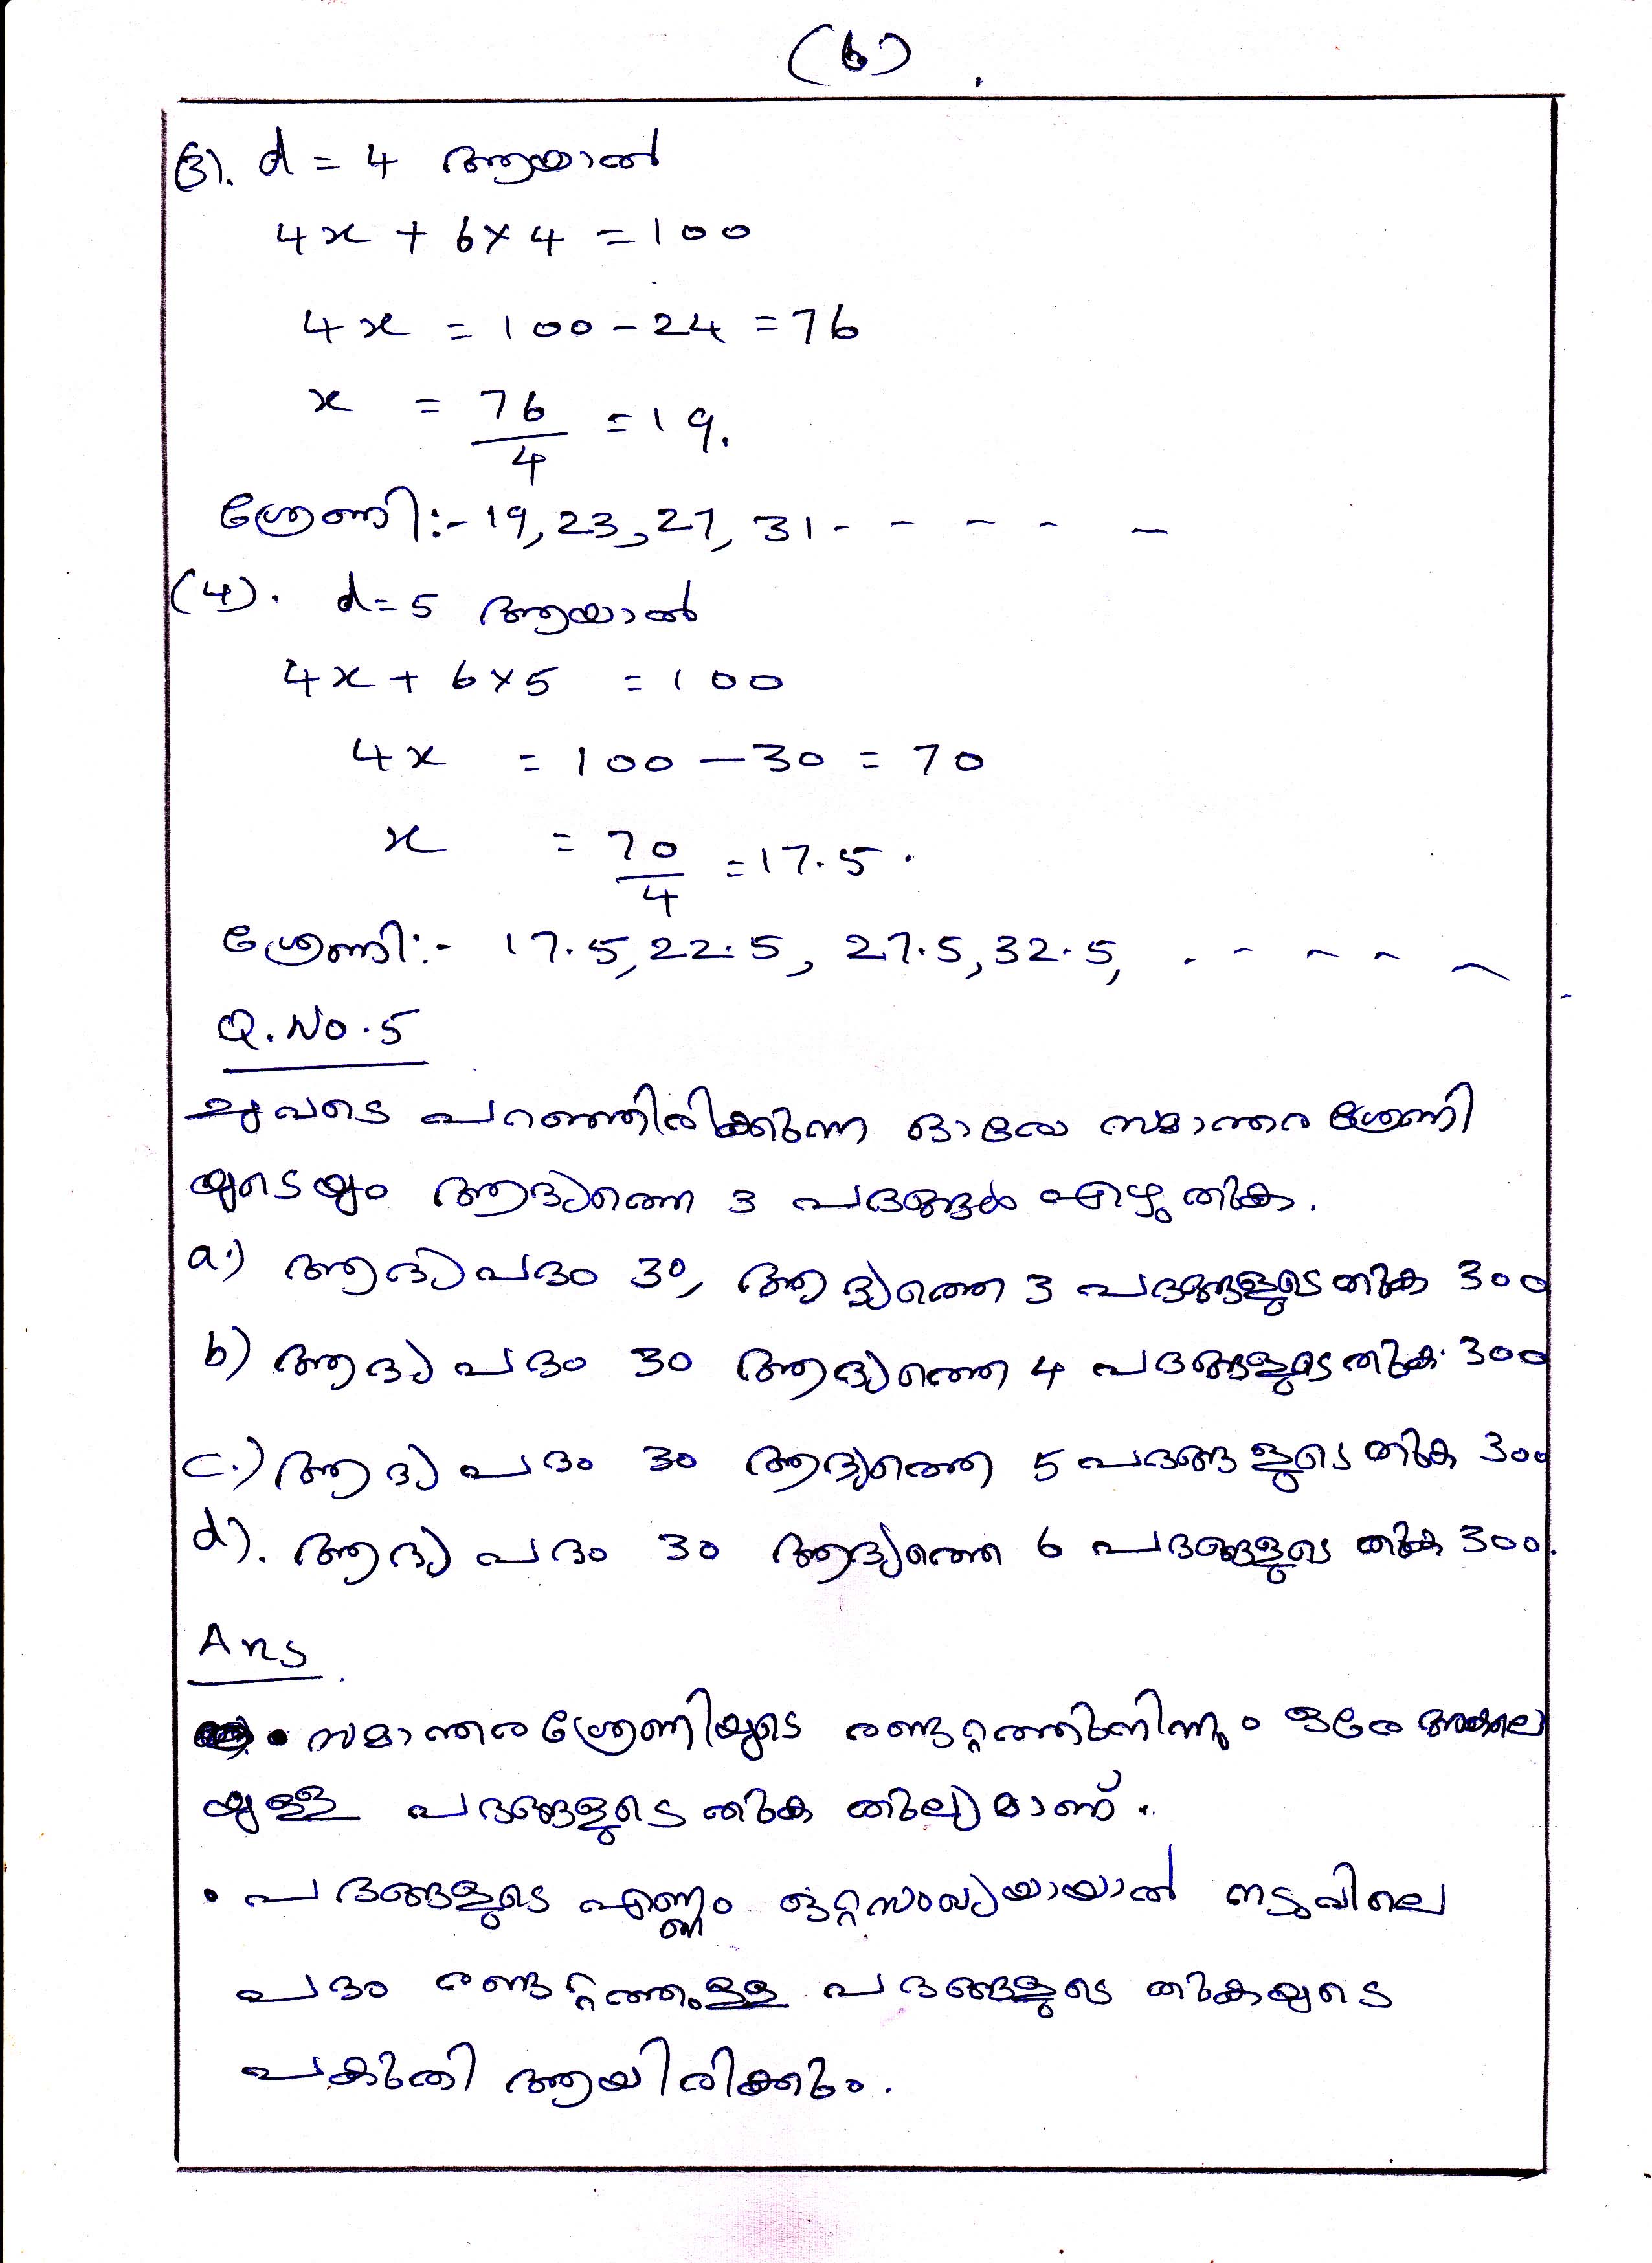 (6)
(3). d = 4 ആയാൽ
4x + 6×4 = 100
4x = 100 - 24 = 76
x = 76/4 = 19.
ശ്രേണി:- 19, 23, 27, 31 - - - - -
(4). d = 5 ആയാൽ
4x + 6×5 = 100
4x = 100 - 30 = 70
x = 70/4 = 17.5.
ശ്രേണി:- 17.5, 22.5, 27.5, 32.5, - - - - -
Q.No.5
ചുവടെ പറഞ്ഞിരിക്കുന്ന ഓരോ സമാന്തര ശ്രേണി
യുടെയും ആദ്യത്തെ 3 പദങ്ങൾ എഴുതുക.
a.) ആദ്യ പദം 30, ആദ്യത്തെ 3 പദങ്ങളുടെ തുക 300
b) ആദ്യ പദം 30 ആദ്യത്തെ 4 പദങ്ങളുടെ തുക 300
c.) ആദ്യ പദം 30 ആദ്യത്തെ 5 പദങ്ങളുടെ തുക 300
d). ആദ്യ പദം 30 ആദ്യത്തെ 6 പദങ്ങളുടെ തുക 300.
Ans
• സമാന്തരശ്രേണിയുടെ രണ്ടറ്റത്തുനിന്നും ഒരേ അകല
യുള്ള പദങ്ങളുടെ തുക തുല്യമാണ്.
• പദങ്ങളുടെ എണ്ണം ഒറ്റസംഖ്യയായാൽ നടുവിലെ
പദം രണ്ടറ്റത്തുള്ള പദങ്ങളുടെ തുകയുടെ
പകുതി ആയിരിക്കും.